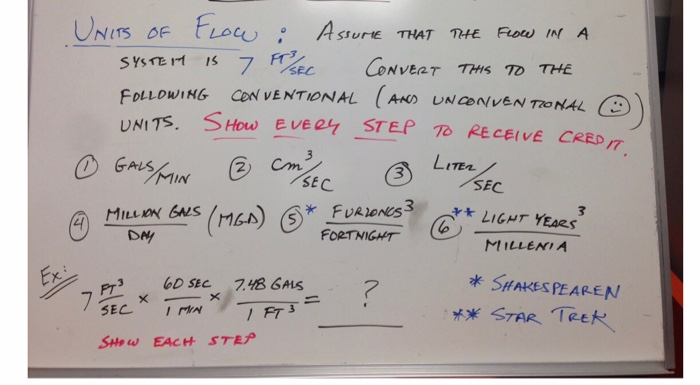 UNITS OF FLOW : ASSUME THAT THE FLOW IN A
SYSTEM IS 7 FT³/SEC CONVERT THIS TO THE
FOLLOWING CONVENTIONAL (AND UNCONVENTIONAL ☺)
UNITS. SHOW EVERY STEP TO RECEIVE CREDIT.
① GALS/MIN ② cm³/SEC ③ LITER/SEC
④ MILLION GALS/DAY (MGD) ⑤* FURLONGS³/FORTNIGHT ⑥** LIGHT YEARS³/MILLENIA
Ex: 7 FT³/SEC × 60 SEC/1 MIN × 7.48 GALS/1 FT³ = ?
* SHAKESPEAREN
** STAR TREK
SHOW EACH STEP